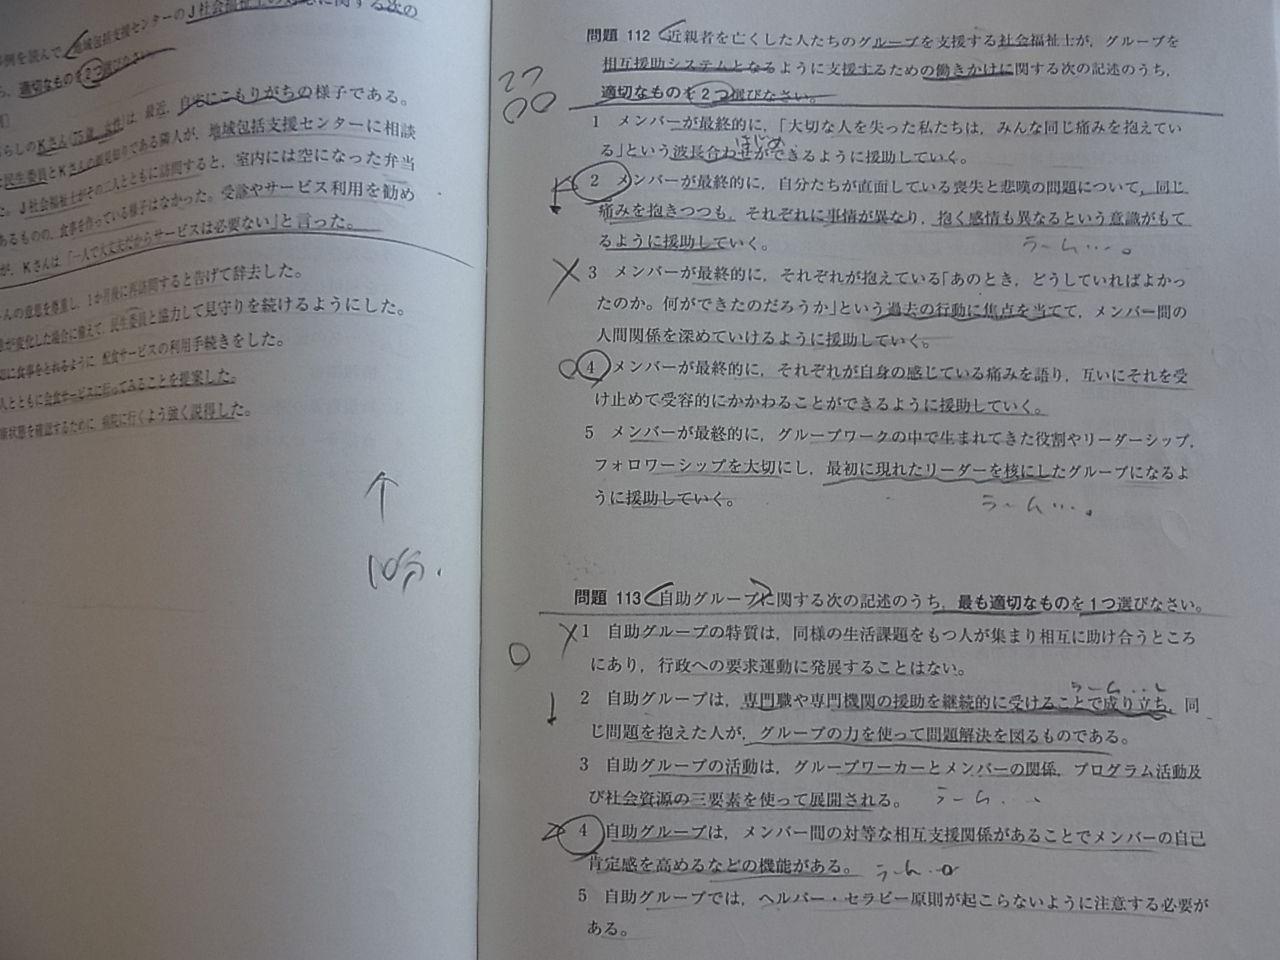 J社会福祉士の対応に関する次の
事例を読んで、地域包括支援センターの
適切なものを2つ選びなさい。
Kさん(75歳、女性)は、最近、自宅にこもりがちの様子である。
民生委員とKさんの顔見知りである隣人が、地域包括支援センターに相談
J社会福祉士がその二人とともに訪問すると、室内には空になった弁当
あるものの、食事を作っている様子はなかった。受診やサービス利用を勧め
が、Kさんは「一人で大丈夫だからサービスは必要ない」と言った。
の意思を尊重し、1か月後に再訪問すると告げて辞去した。
が変化した場合に備えて、民生委員と協力して見守りを続けるようにした。
に食事をとれるように、配食サービスの利用手続きをした。
人とともに会食サービスに行ってみることを提案した。
状態を確認するために、病院に行くよう強く説得した。
↑
10分.
問題 112 近親者を亡くした人たちのグループを支援する社会福祉士が、グループを
相互援助システムとなるように支援するための働きかけに関する次の記述のうち、
適切なものを2つ選びなさい。
1 メンバーが最終的に、「大切な人を失った私たちは、みんな同じ痛みを抱えてい
はじめ
る」という波長合わせができるように援助していく。
2 メンバーが最終的に、自分たちが直面している喪失と悲嘆の問題について、同じ
痛みを抱きつつも、それぞれに事情が異なり、抱く感情も異なるという意識がもて
るように援助していく。 うーん…。
3 メンバーが最終的に、それぞれが抱えている「あのとき、どうしていればよかっ
たのか。何ができたのだろうか」という過去の行動に焦点を当てて、メンバー間の
人間関係を深めていけるように援助していく。
4 メンバーが最終的に、それぞれが自身の感じている痛みを語り、互いにそれを受
け止めて受容的にかかわることができるように援助していく。
5 メンバーが最終的に、グループワークの中で生まれてきた役割やリーダーシップ、
フォロワーシップを大切にし、最初に現れたリーダーを核にしたグループになるよ
うに援助していく。 うーん…。
問題 113 自助グループに関する次の記述のうち、最も適切なものを1つ選びなさい。
1 自助グループの特質は、同様の生活課題をもつ人が集まり相互に助け合うところ
にあり、行政への要求運動に発展することはない。
2 自助グループは、専門職や専門機関の援助を継続的に受けることで成り立ち、同
じ問題を抱えた人が、グループの力を使って問題解決を図るものである。
3 自助グループの活動は、グループワーカーとメンバーの関係、プログラム活動及
び社会資源の三要素を使って展開される。 うーん…
4 自助グループは、メンバー間の対等な相互支援関係があることでメンバーの自己
肯定感を高めるなどの機能がある。
5 自助グループでは、ヘルパー・セラピー原則が起こらないように注意する必要が
ある。